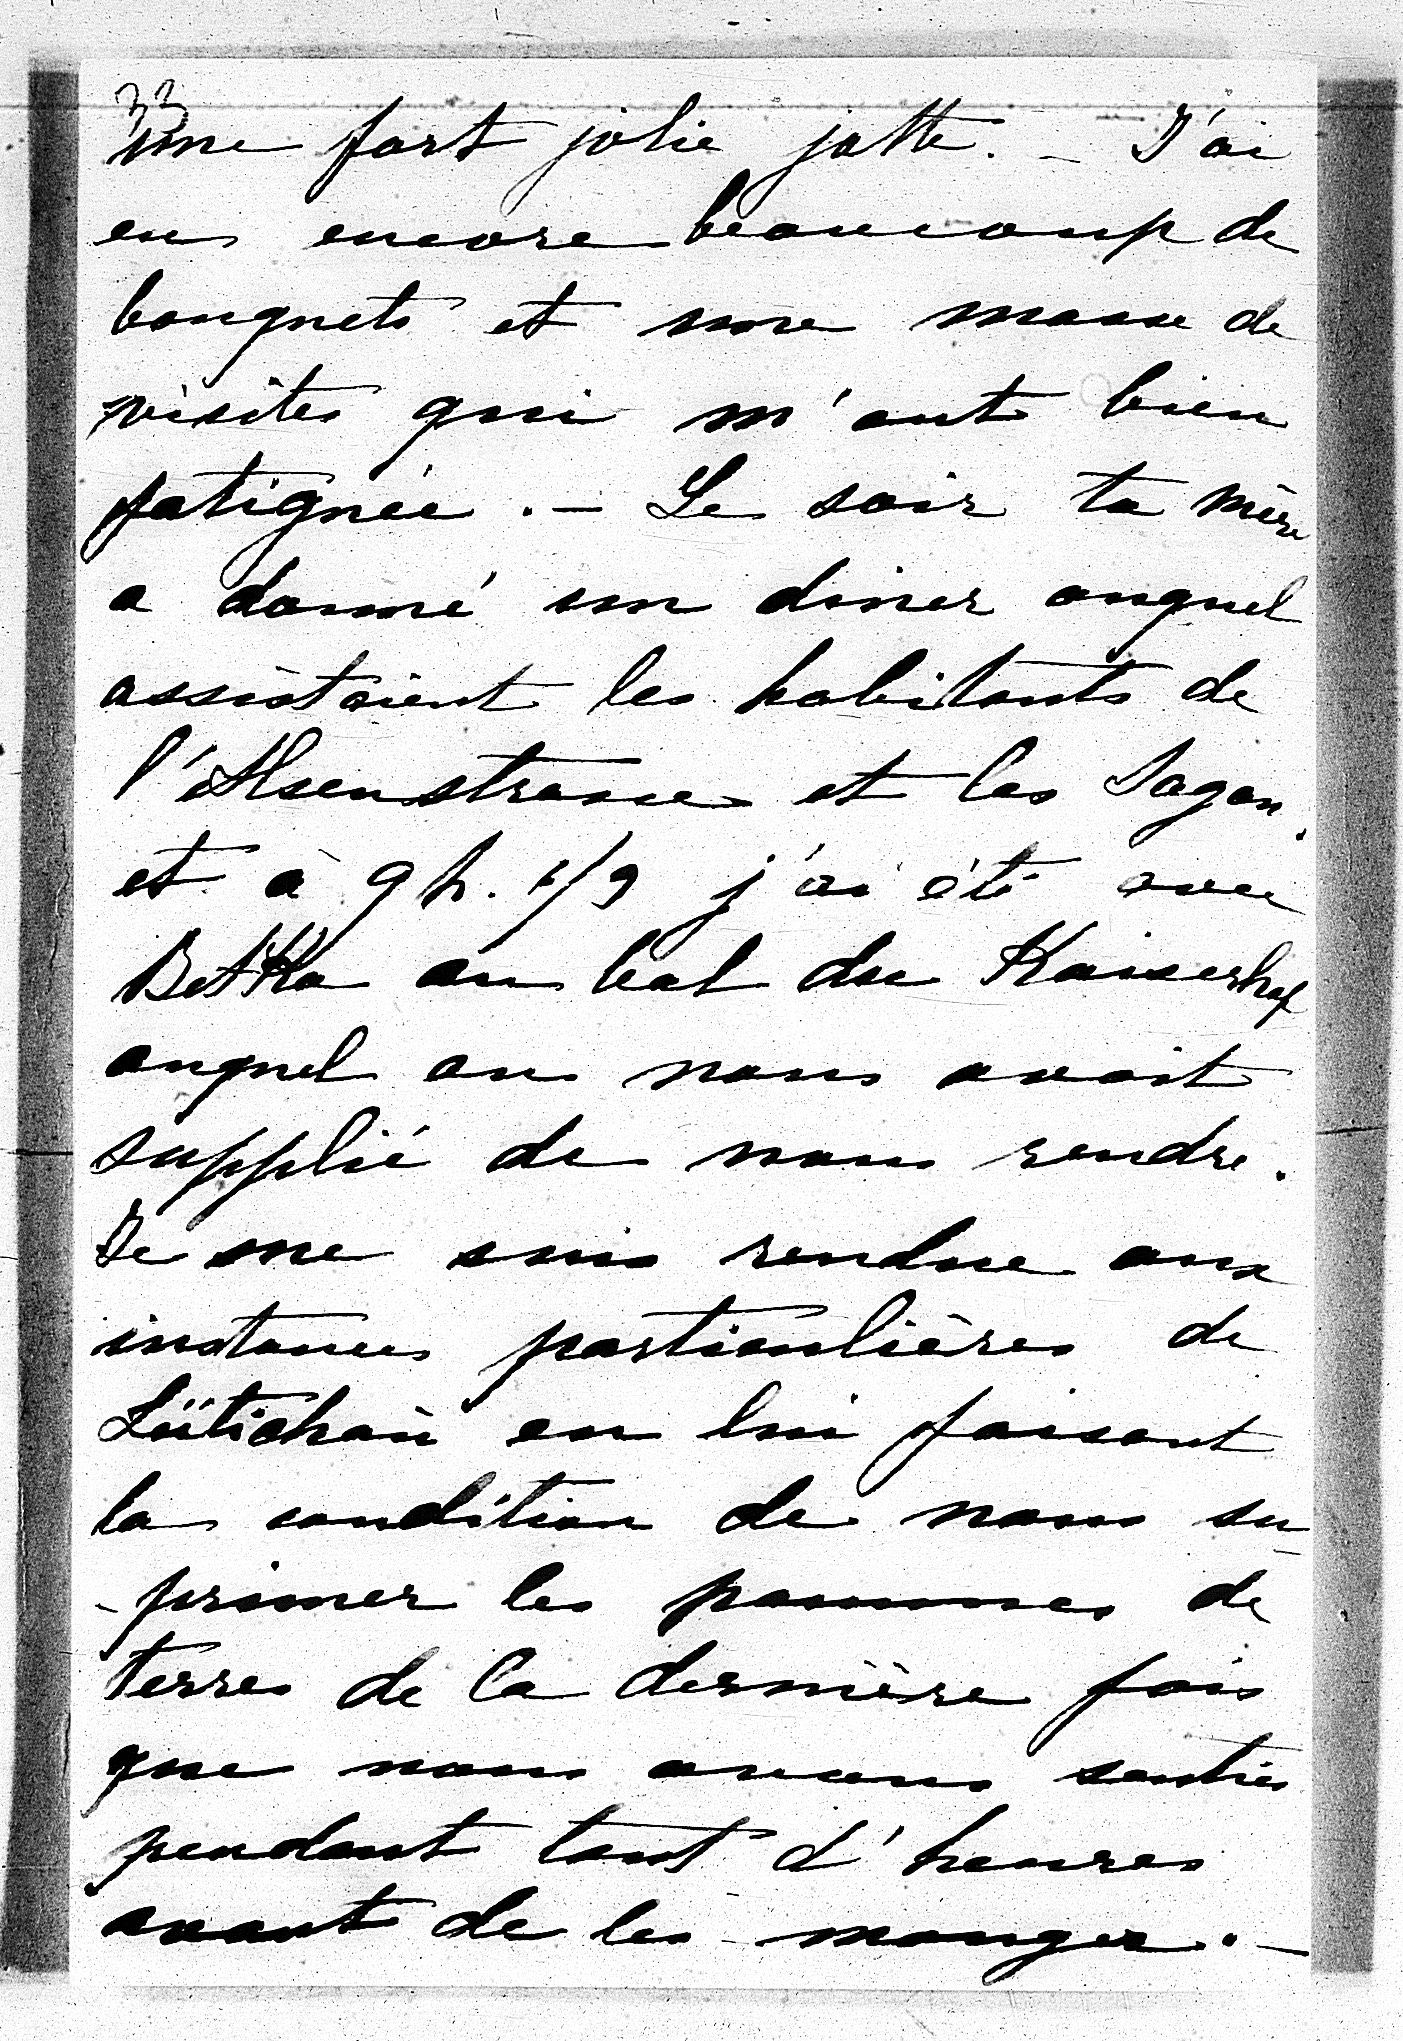 33
une fort jolie jatte. — J'ai
eu encore beaucoup de
bouquets et une masse de
visites qui m'ont bien
fatiguée. — Le soir ta mère
a donné un diner auquel
assistaient les habitants de
l'Alsenstrasse et les Sagan,
et à 9 h. 1/2 j'ai été avec
Betka au bal du Kaiserhof
auquel on nous avait
supplié de nous rendre.
Je me suis rendue aux
instances particulières de
Lüttichau en lui faisant
la condition de nous su-
-primer les pommes de
terres de la dernière fois
que nous avions senties
pendant tant d'heures
avant de les manger. —